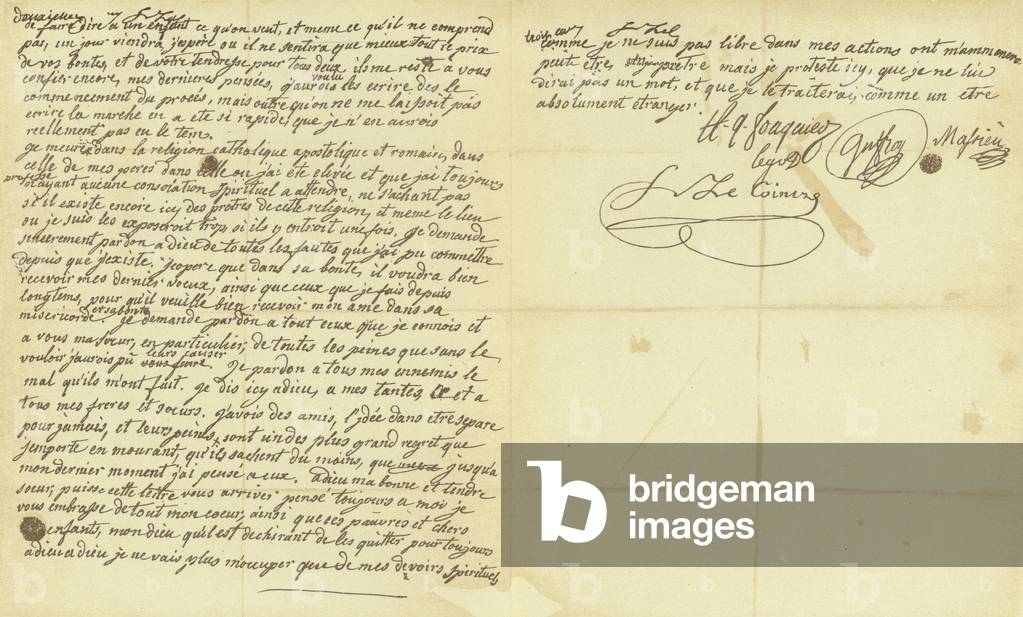 de faire dire a un enfant ce qu'on veut, et meme ce qu'il ne comprend
pas, un jour viendra j'espere ou il ne sentira que mieux tout le prix
de vos bontes, et de votre tendresse pour tous deux, il me reste a vous
confier encore, mes dernieres pensées, j'aurois voulu les ecrire des le
commencement du procés, mais outre qu'on ne me laissoit pas
ecrire la marche en a eté si rapide, que je n'en aurois
reellement pas eu le tems.
je meurs dans la religion catholique apostolique et romaine, dans
celle de mes peres dans celle ou j'ai été elevée et que j'ai toujours
professé
n'ayant aucune consolation spirituel a attendre, ne sachant pas
s'il existe encore icy des pretres de cette religion, et meme le lieu
ou je suis les exposeroit trop, si ils y entroit une fois. je demande
sincerement pardon a dieu de toutes les fautes que j'ai pu commettre
depuis que j'existe. j'espere que dans sa bonté, il voudra bien
recevoir mes dernier voeux, ainsi que ceux que je fais depuis
longtems, pour qu'il veuille bien recevoir mon ame dans sa
misericorde et sa bonté. je demande pardon a tout ceux que je connois et
a vous ma soeur, en particulier, de toutes les peines que sans le
vouloir j'aurois pû leurs causer vous faire. Je pardon a tous mes ennemis le
mal qu'ils m'ont fait. je dis icy adieu, a mes tantes, et a
tous mes freres et soeurs. j'avois des amis, l'idée d'en etre separé
pour jamais, et leurs peines, sont un des plus grand regret que
j'emporte en mourant, qu'ils sachent du moins, que jusqu'a
mon dernier moment j'ai pensé a eux. adieu ma bonne et tendre
soeur, puisse cette lettre vous arriver pensé toujours a moi je
vous embrasse de tout mon coeur, ainsi que ces pauvres et chers
enfants, mon dieu qu'il est dechirant de les quitter pour toujours
adieu adieu je ne vais plus m'occuper que de mes devoirs spirituels
comme je ne suis pas libre dans mes actions on m'amenera
peut etre, un pretre mais je proteste icy, que je ne lui
dirai pas un mot, et que je le traiterai comme un etre
absolument etranger
A. q. fouquier
guffroy
Massieu
legot
Le Cointre
bridgeman
images